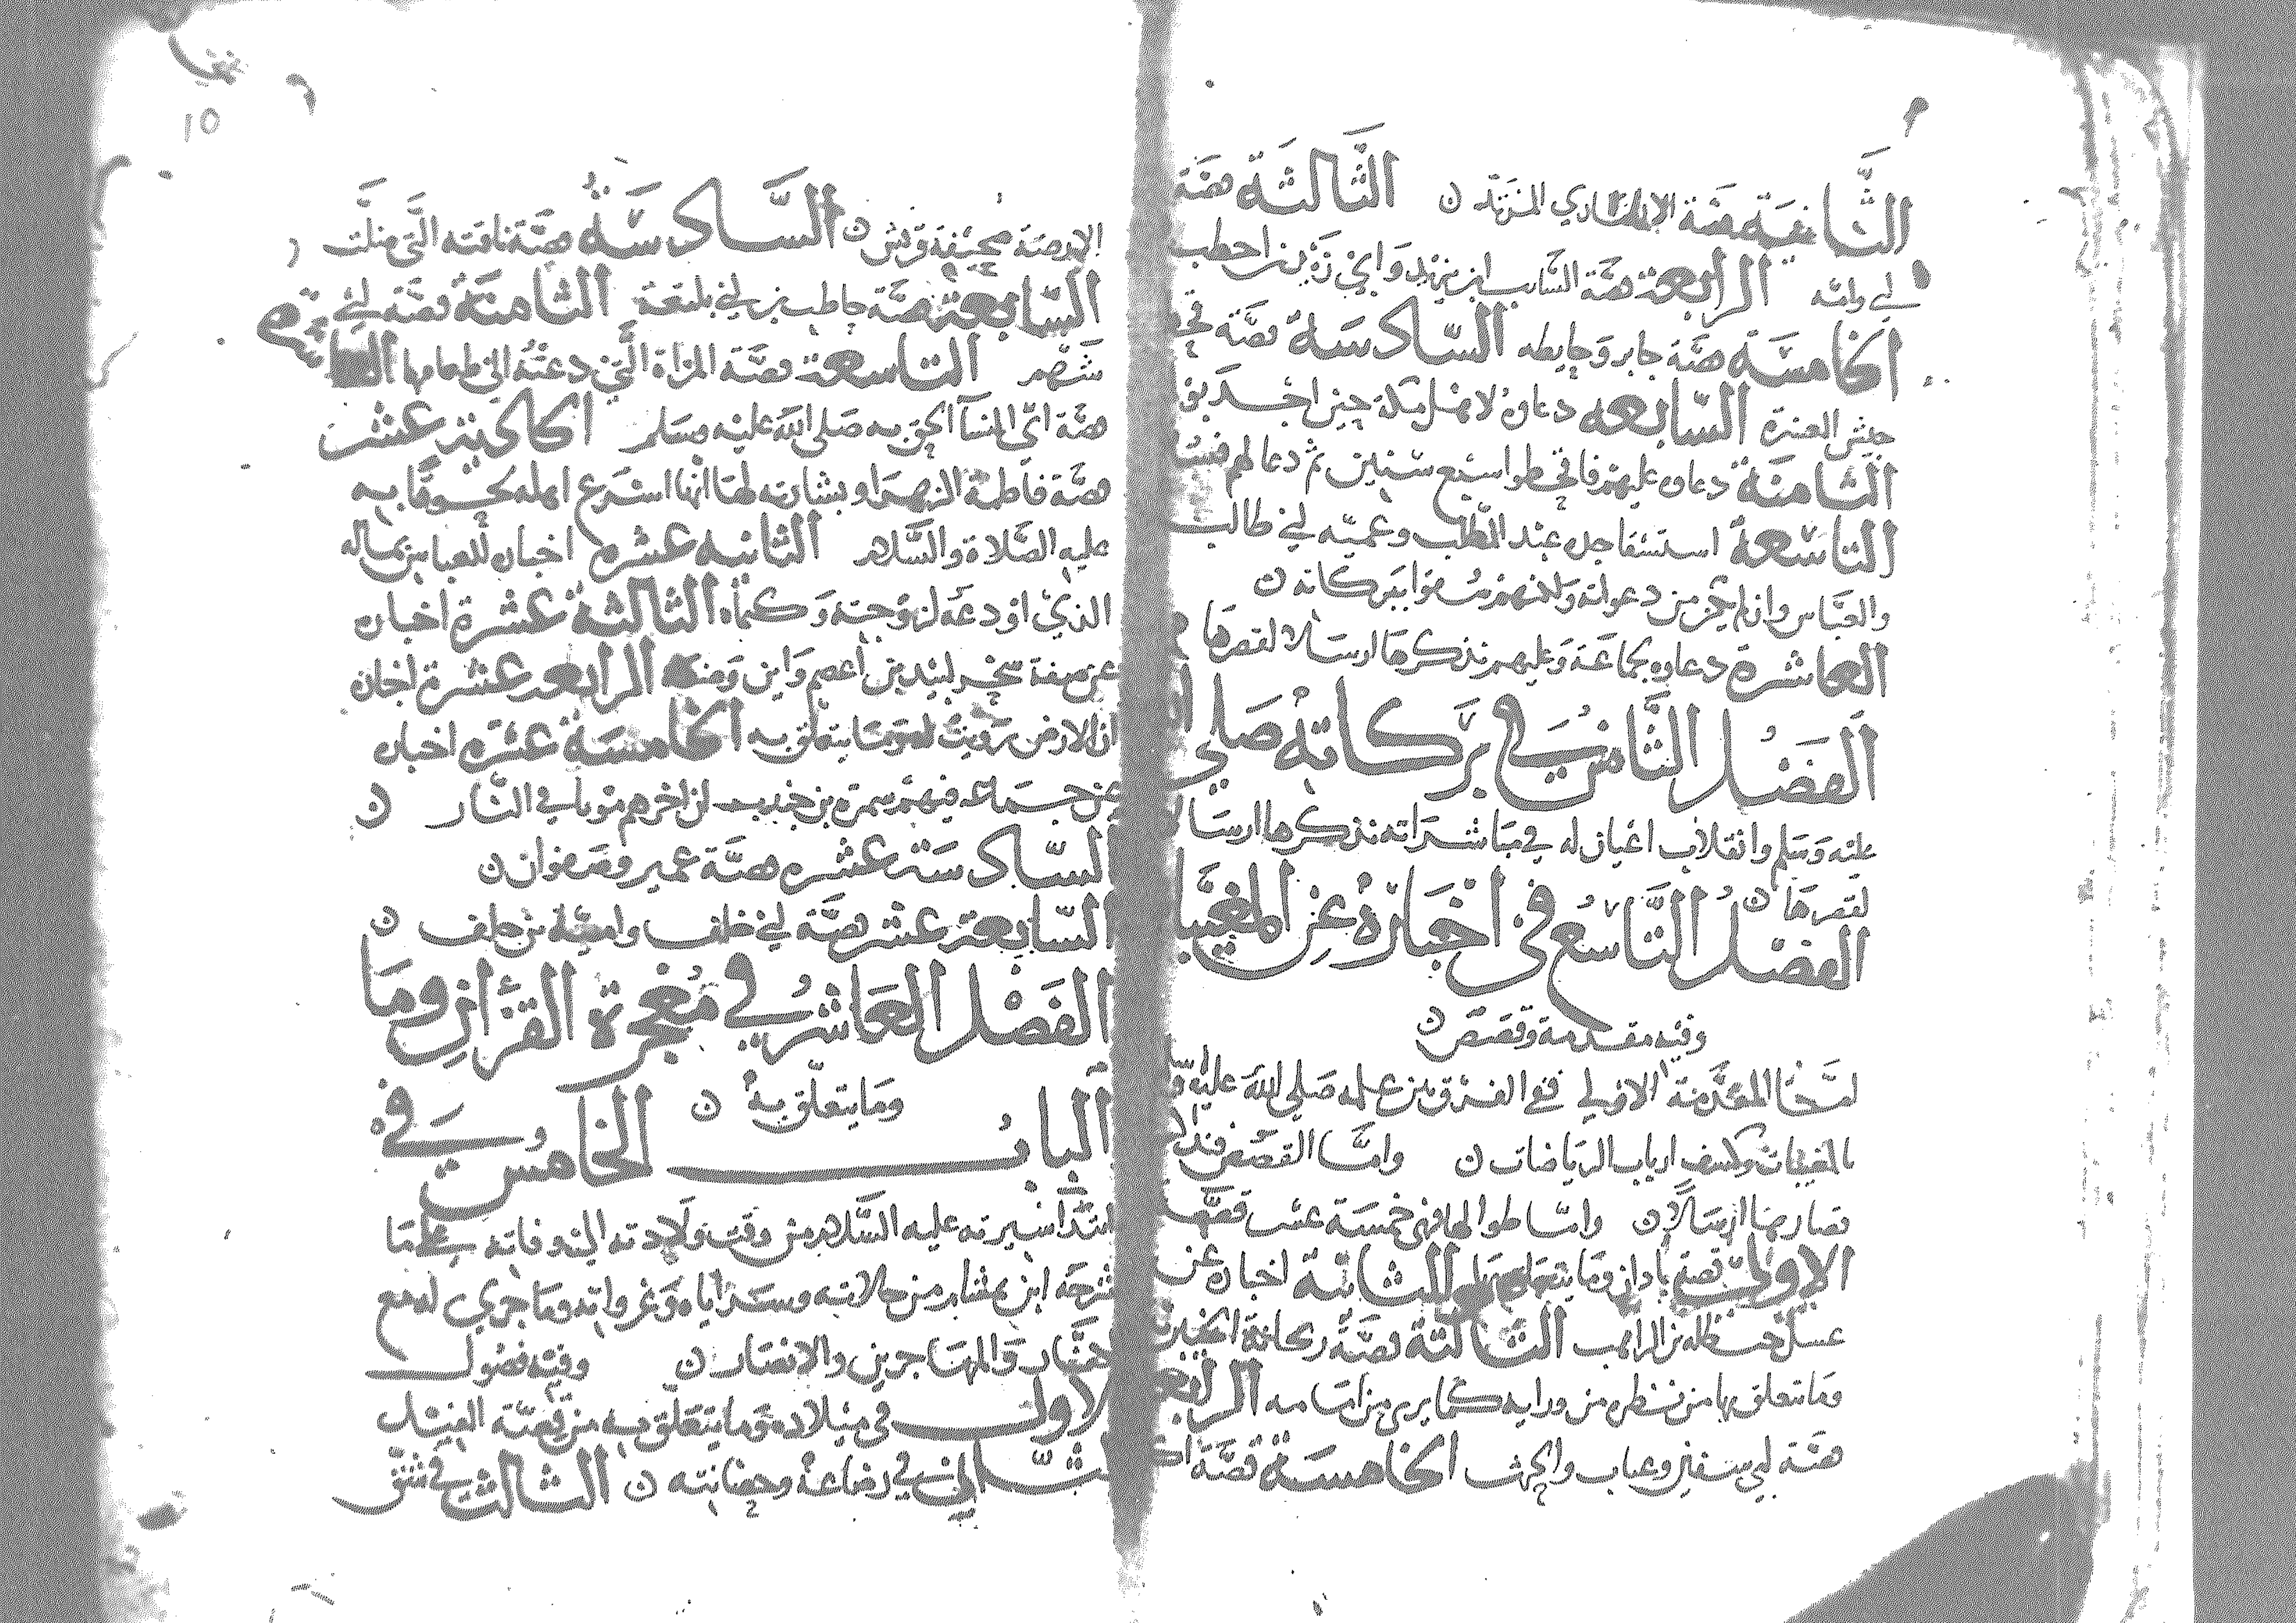 الثانية قصة الانصاري المرتد ن الثالثة قصة
ابي وامه الرابعة قصة السائب ابن يزيد وابي زيد بن اخطب
الخامسة قصة جابر وحايطه السادسة قصة
جيش العسرة السابعة دعاؤه لاهل مكة حين
الثامنة دعاؤه عليهم فاقحطوا سبع سنين ثم دعا لهم فسقوا
التاسعة استسقا جده عبد المطلب وعميه ابي طالب
والعباس وان لم يكن من دعواته ولانهم سقوا ببركاته ن
العاشرة دعاوه لجماعة وعليهم نذكرها ارسالا لقصرها
الفصل الثامن في بركاته صلى الله
عليه وسلم وانقلاب اعيان له في مباشراته نذكرها ارسالا
لقصرها ن
الفصل التاسع في اخباره عن المغيبات
وفيه مقدمة وقصص ن
اما المقدمة الاولى ففي الفرق بين علمه صلى الله عليه وسلم
بالمغيبات وكشف ارباب الرياضات ن واما القصص فنذكر
قصارها ارسالا ن واما طوالها فهي خمسة عشر قصة
الاولى قصة باذان وما يتعلق بها الثانية اخباره عن
غسل حنظلة بن الراهب الثالثة قصة
وما يتعلق بها من نظره من ورايه كما يرى من امامه الرابعة
قصة ابي سفين وعتاب والحرث الخامسة قصة
الارضة صحيفة قريش ن السادسة قصة ناقته التي ضلت
السابعة قصة حاطب بن ابي بلتعة الثامنة قصة ابي
التاسعة قصة المراة التي دعته الى طعامها العاشرة
قصة اي النساء الحق به صلى الله عليه وسلم الحادية عشر
قصة فاطمة الزهراء وبشارته لها انها اسرع اهله لحوقا به
عليه الصلاة والسلام الثانية عشرة اخباره للعباس بماله
الذي اودعه لزوجته وكتماه الثالثة عشرة اخباره
عن صفة سحر لبيد بن اعصم واين وضعه الرابعة عشرة اخباره
ان الارض زويت له وما يتعلق به الخامسة عشرة اخباره
عن جماعة فيهم سمرة بن جندب ان اخرهم موتا في النار ن
السادسة عشره قصة عمير وصفوان ن
السابعة عشر قصة ابي خلف وامية بن خلف ن
الفصل العاشر في معجزة القرآن وما
وما يتعلق به ن
الباب الخامس في
ابتدا سيرته عليه السلام من وقت ولادته الى وفاته على ما
شرحه ابن هشام من حالاته وسراياه وغزواته وما جرى له مع
الكفار والمهاجرين والانصار ن وفيه فصول
الاول في ميلاده وما يتعلق به من قصة الفيل
الثاني في رضاعه وحضانته ن الثالث في شق